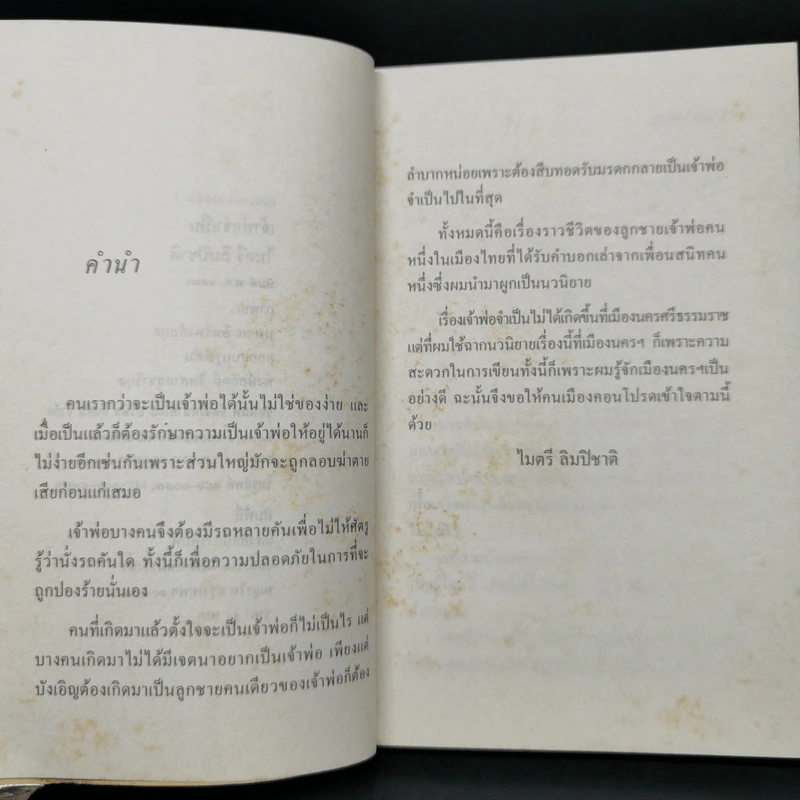 คำนำ
คนเรากว่าจะเป็นเจ้าพ่อได้นั้นไม่ใช่ของง่าย และ
เมื่อเป็นแล้วก็ต้องรักษาความเป็นเจ้าพ่อให้อยู่ได้นานก็
ไม่ง่ายอีกเช่นกันเพราะส่วนใหญ่มักจะถูกลอบฆ่าตาย
เสียก่อนแก่เสมอ
เจ้าพ่อบางคนจึงต้องมีรถหลายคันเพื่อไม่ให้ศัตรู
รู้ว่านั่งรถคันใด ทั้งนี้ก็เพื่อความปลอดภัยในการที่จะ
ถูกปองร้ายนั่นเอง
คนที่เกิดมาแล้วตั้งใจจะเป็นเจ้าพ่อก็ไม่เป็นไร แต่
บางคนเกิดมาไม่ได้มีเจตนาอยากเป็นเจ้าพ่อ เพียงแต่
บังเอิญต้องเกิดมาเป็นลูกชายคนเดียวของเจ้าพ่อก็ต้อง
ลำบากหน่อยเพราะต้องสืบทอดรับมรดกกลายเป็นเจ้าพ่อ
จำเป็นไปในที่สุด
ทั้งหมดนี้คือเรื่องราวชีวิตของลูกชายเจ้าพ่อคน
หนึ่งในเมืองไทยที่ได้รับคำบอกเล่าจากเพื่อนสนิทคน
หนึ่งซึ่งผมนำมาผูกเป็นนวนิยาย
เรื่องเจ้าพ่อจำเป็นไม่ได้เกิดขึ้นที่เมืองนครศรีธรรมราช
แต่ที่ผมใช้ฉากนวนิยายเรื่องนี้ที่เมืองนครฯ ก็เพราะความ
สะดวกในการเขียนทั้งนี้ก็เพราะผมรู้จักเมืองนครฯเป็น
อย่างดี ฉะนั้นจึงขอให้คนเมืองคอนโปรดเข้าใจตามนี้
ด้วย
ไมตรี ลิมปิชาติ